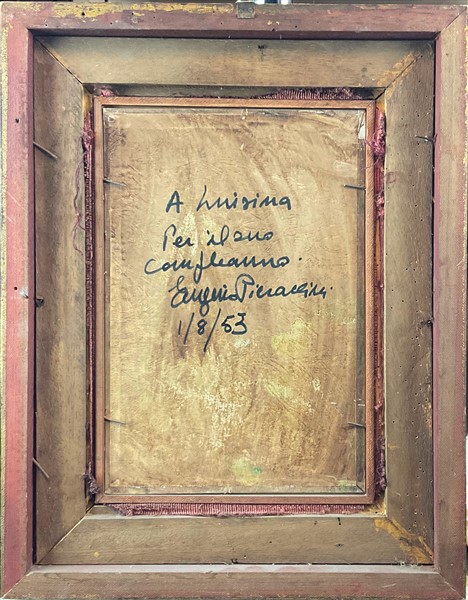 A Luisina
Per il suo
compleanno.
Eugenio Pieraccini.
1/8/53